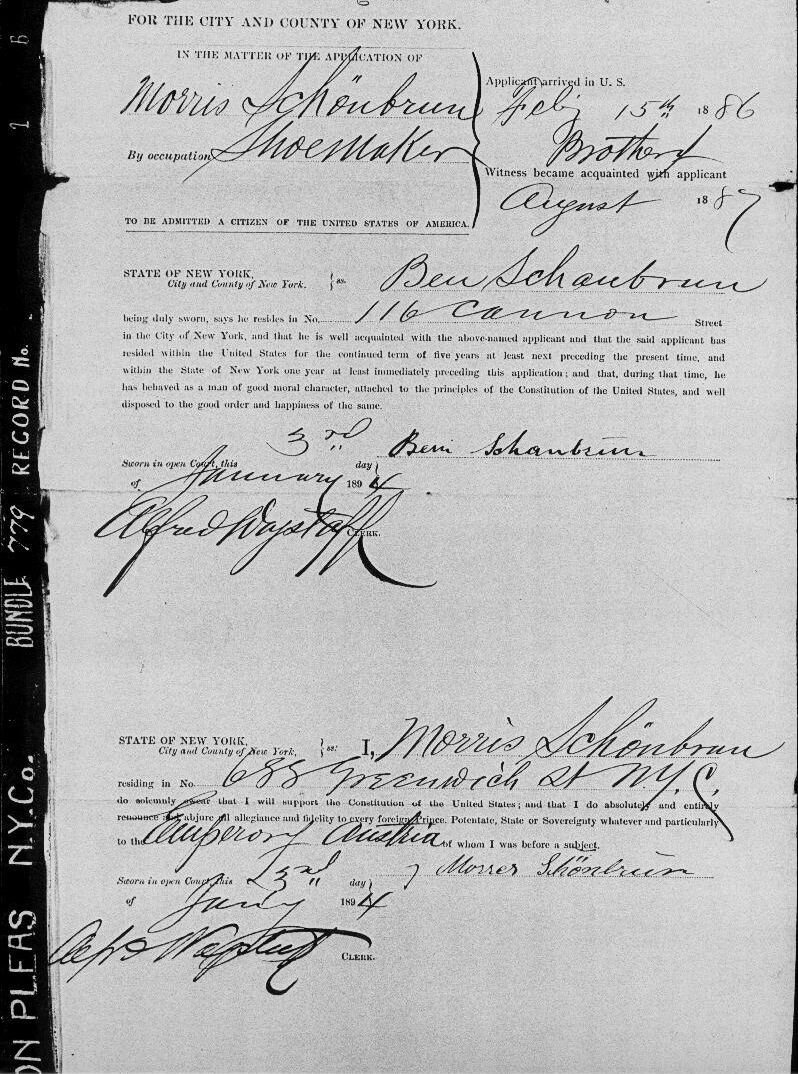 FOR THE CITY AND COUNTY OF NEW YORK.
IN THE MATTER OF THE APPLICATION OF
Morris Schönbrun
By occupation Shoemaker
TO BE ADMITTED A CITIZEN OF THE UNITED STATES OF AMERICA.
Applicant arrived in U. S.
15th 1886
Witness became acquainted with applicant
August 1887
STATE OF NEW YORK,
City and County of New York. } ss.
Ben Schanbrun
being duly sworn, says he resides in No. 116 Cannon Street
in the City of New York, and that he is well acquainted with the above-named applicant and that the said applicant has
resided within the United States for the continued term of five years at least next preceding the present time, and
within the State of New York one year at least immediately preceding this application; and that, during that time, he
has behaved as a man of good moral character, attached to the principles of the Constitution of the United States, and well
disposed to the good order and happiness of the same.
Sworn in open Court, this 3rd day
of January 1894
Schanbrun
Alfred Wagstaff
CLERK.
STATE OF NEW YORK,
City and County of New York, } ss:
I, Morris Schönbrun
residing in No. Greenwich St N.Y.C.
do solemnly swear that I will support the Constitution of the United States; and that I do absolutely and entirely
renounce and abjure all allegiance and fidelity to every foreign Prince, Potentate, State or Sovereignty whatever and particularly
to the Emperor of Austria of whom I was before a subject.
Sworn in open Court, this day
of Jany 1894
Schönbrun
CLERK.
ON PLEAS N.Y.Co. BUNDLE 779 RECORD No.